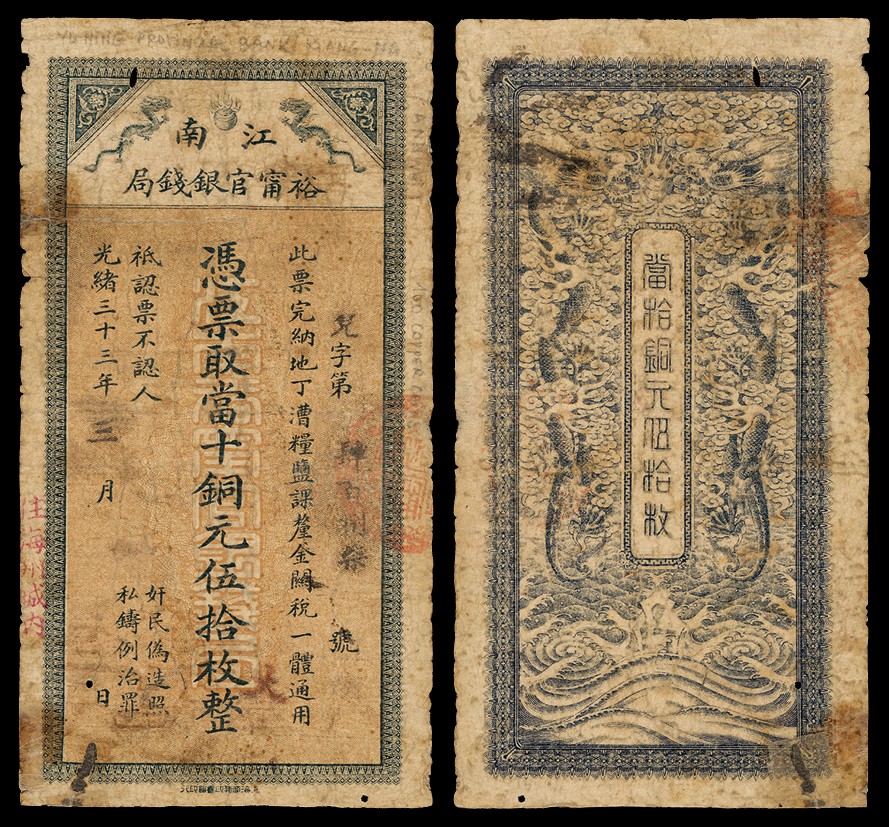 YU NING PROVINCE BANK KIANG-NA
江南
裕甯官銀錢局
字第
號
此票完納地丁漕糧鹽課釐金關稅一體通用
憑票取當十銅元伍拾枚整
祇認票不認人
光緒三十三年三月日
奸民偽造照
私鑄例治罪
當拾銅元伍拾枚